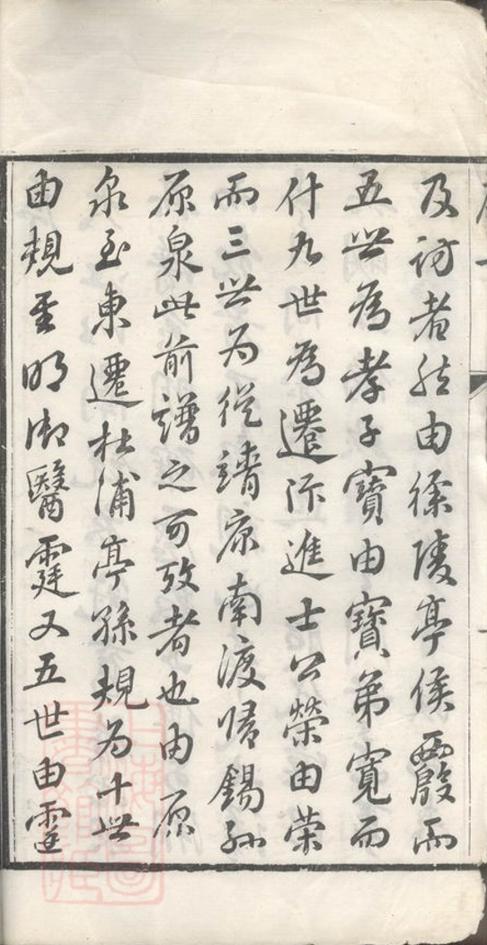 及訪者然由徐陵亭侯殷而
五世為孝子寶由寶弟寬而
什九世為遷沂進士公榮由榮
而三世为從靖康南渡歸錫孙
原泉此前譜之可攷者也由原
泉至東遷杜浦亭孫規为十世
由規至明御醫霆又五世由霆